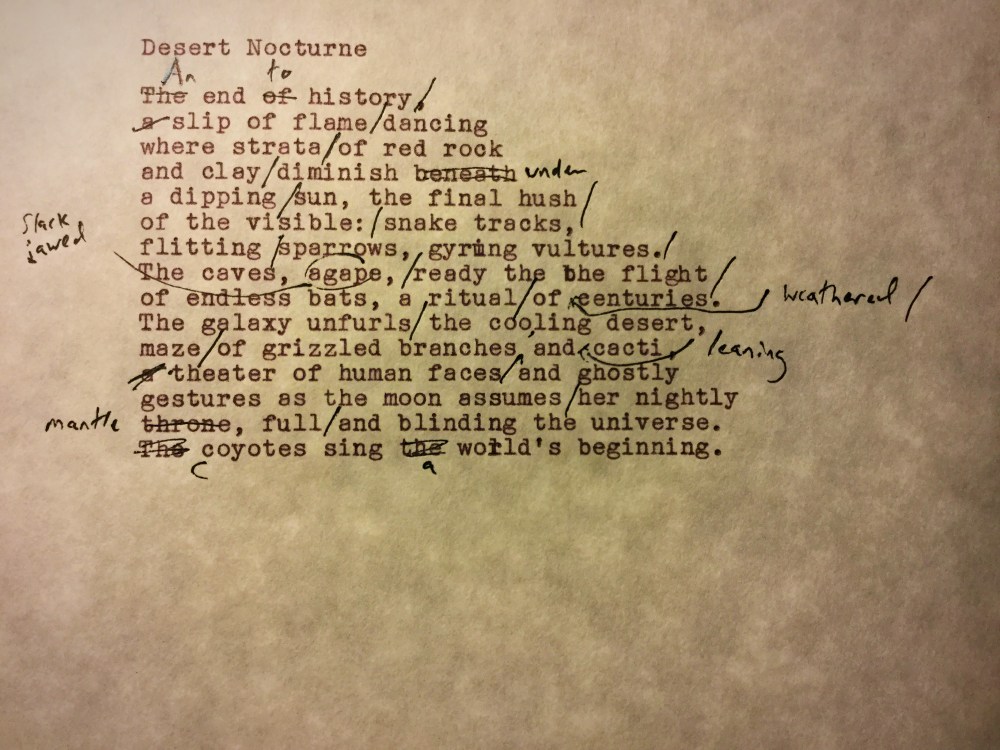 Desert Nocturne
An to
The end of history, /
a slip of flame/dancing
where strata/of red rock
and clay/diminish beneath under
a dipping/sun, the final hush/
of the visible:/snake tracks,
Slack jawed
flitting/sparrows, gyring vultures./
The caves, agape, /ready the the flight/
of endless bats, a ritual/of centuries. weathered /
The galaxy unfurls/the cooling desert,
maze/of grizzled branches, and cacti, leaning
a theater of human faces/and ghostly
gestures as the moon assumes/her nightly
mantle throne, full/and blinding the universe.
The coyotes sing the world's beginning.
C a